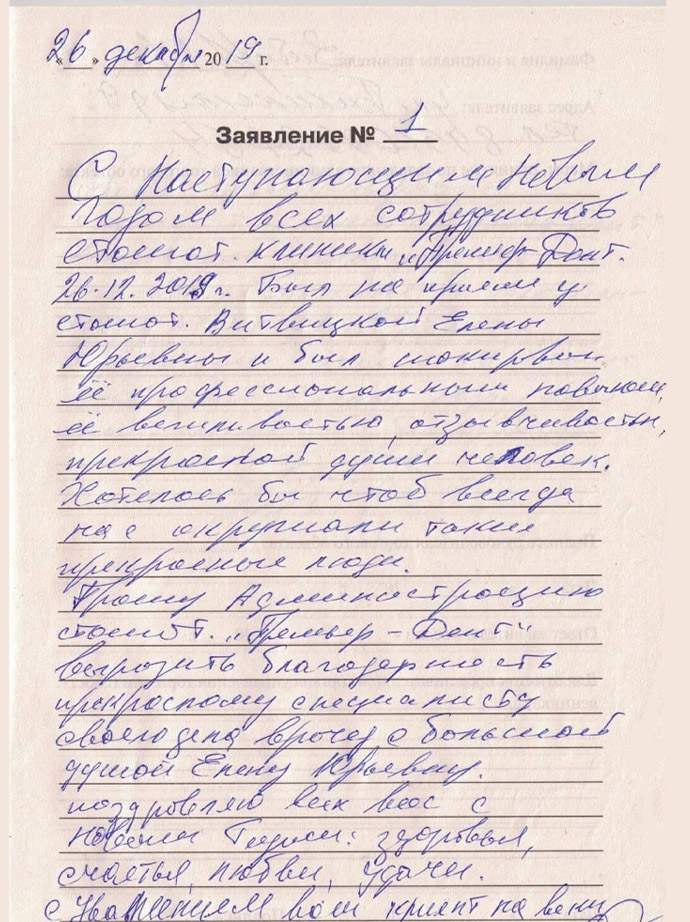 «26» декабря 2019 г.
Заявление № 1
С Наступающим Новым
годом всех сотрудников
стомат. клиники „Премьер-Дент.
26.12.2019г. Был на приеме у
стомат. Витвицкой Елены
Юрьевны и был шокирован
её профессиональными навыками,
её вежливостью, отзывчивостью,
прекрасной души человек.
Хотелось бы чтоб всегда
нас окружали такие
прекрасные люди.
Прошу Администрацию
стомат. „Премьер-Дент"
выразить благодарность
прекрасному специалисту
своего дела, врачу с большой
душой Елену Юрьевну.
поздравляю всех вас с
Новым Годом: здоровья,
счастья, любви, удачи.
с Уважением ваш клиент на веки